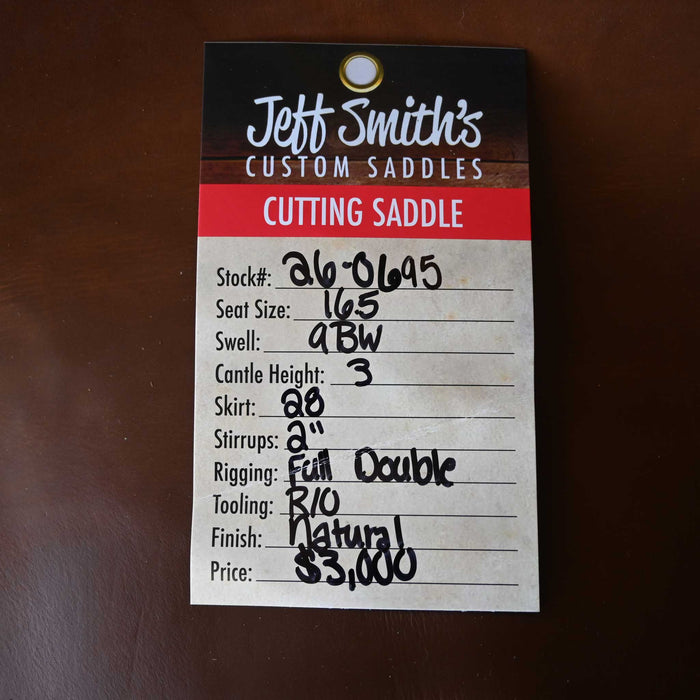 Jeff Smith's
CUSTOM SADDLES
CUTTING SADDLE
Stock#: 26-0695
Seat Size: 16.5
Swell: 9BW
Cantle Height: 3
Skirt: 28
Stirrups: 2"
Rigging: Full Double
Tooling: R/O
Finish: Natural
Price: $3,000